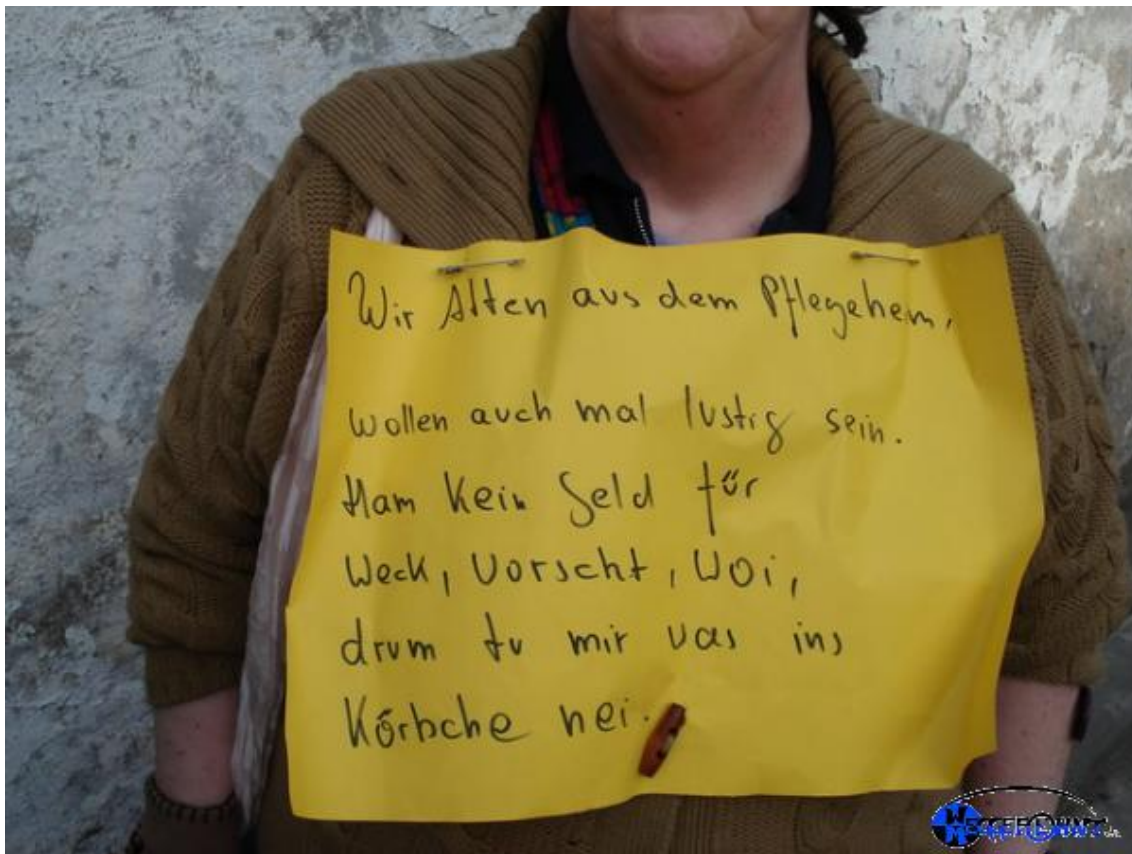 Wir Alten aus dem Pflegehem,
wollen auch mal lustig sein.
Ham kein Geld für
Weck, Worscht, Woi,
drum tu mir was ins
Körbche nei.